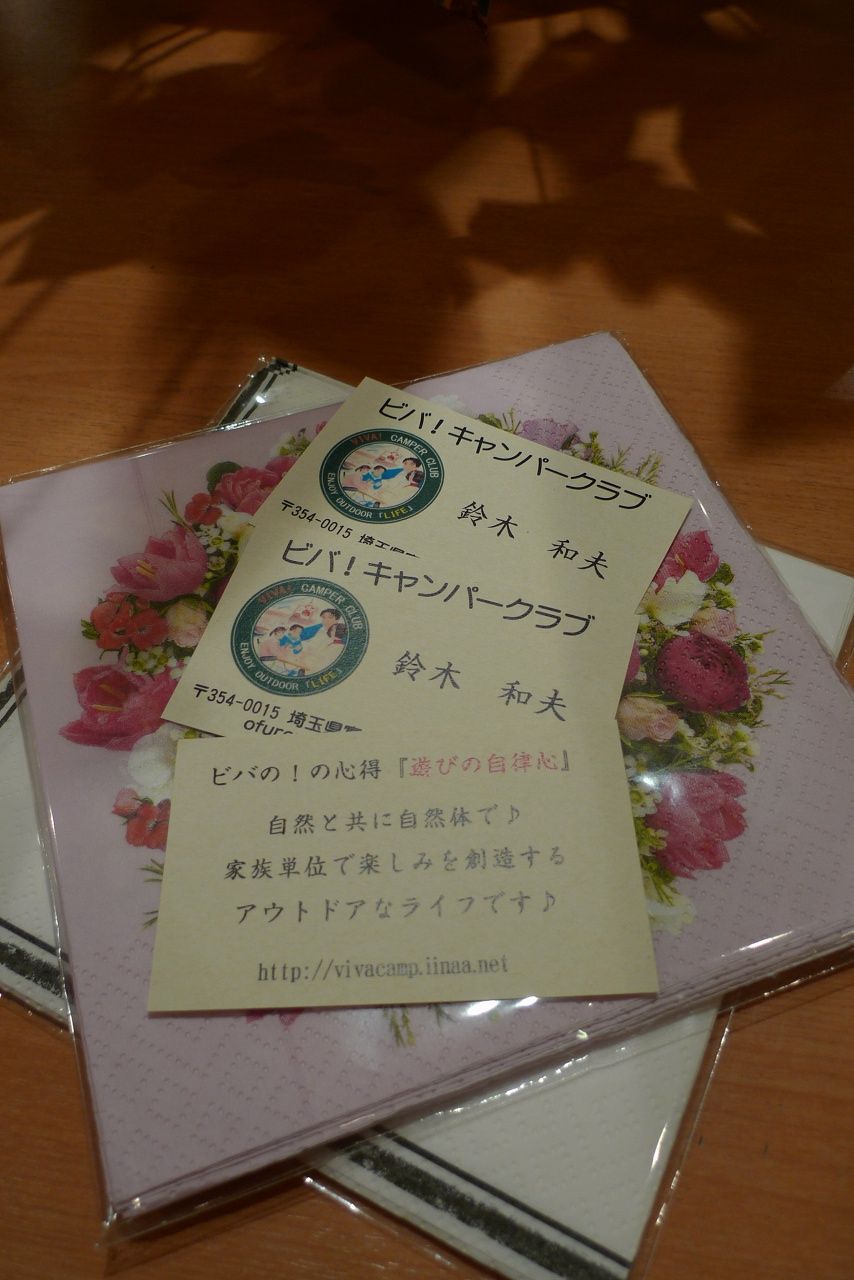 ビバ！キャンパークラブ
VIVA! CAMPER CLUB
ENJOY OUTDOOR「LIFE」
鈴木 和夫
〒354-0015 埼玉県
ビバ！キャンパークラブ
VIVA! CAMPER CLUB
ENJOY OUTDOOR「LIFE」
鈴木 和夫
〒354-0015 埼玉県
ビバの！の心得『遊びの自律心』
自然と共に自然体で♪
家族単位で楽しみを創造する
アウトドアなライフです♪
http://vivacamp.iinaa.net